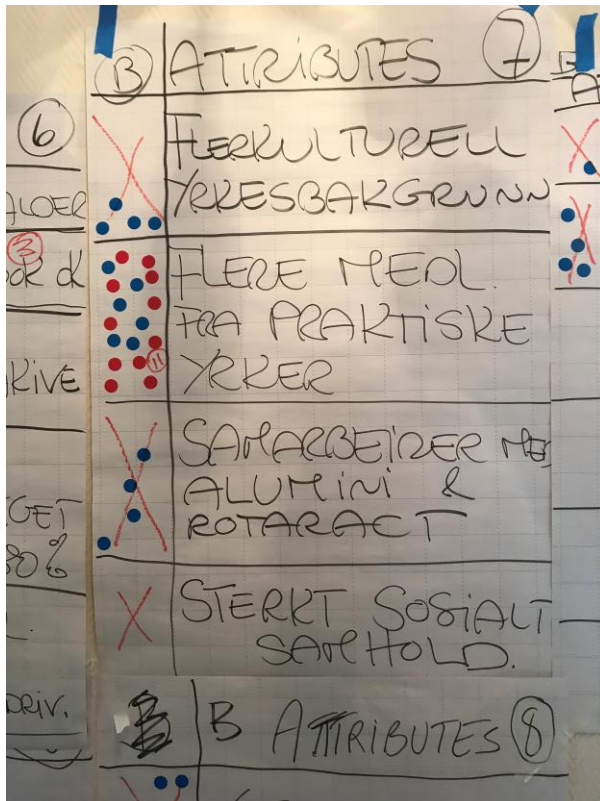 6
ALDER
3
OR d
KIVE
GET
80%
DRIV.
B ATTRIBUTES 7
FLERKULTURELL
YRKESBAKGRUNN
FLERE MEDL.
FRA PRAKTISKE
11 YRKER
SAMARBEIDER ME
ALUMINI &
ROTARACT
STERKT SOSIALT
SAMHOLD.
B ATTRIBUTES 8
A